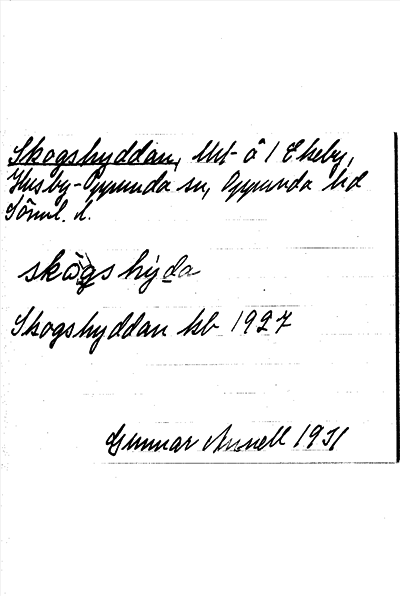 Skogshyddan, lht å 1 Ekeby,
Husby-Oppunda sn, Oppunda hd
Söml. l.
skògshýda
Skogshyddan kb 1927
Gunnar 1931